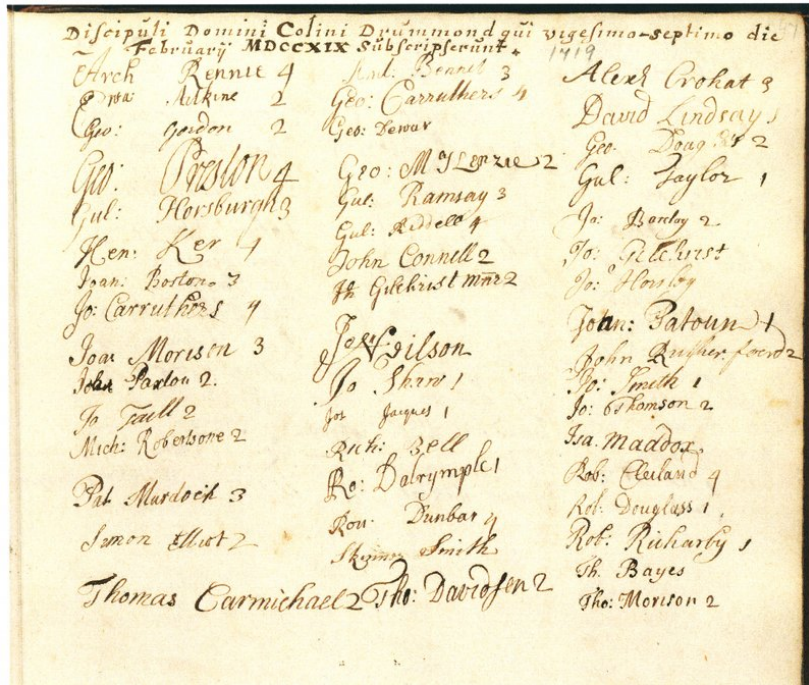 Discipuli Domini Colini Drummond qui vigesimo-septimo die
Februarij MDCCXIX Subscripserunt.
1719
Arch Rennie 4
Aitkine 2
Geo: Gordon 2
Geo: Preston 4
Gul: Horsburgh 3
Hen: Ker 4
Joan: Boston. 3
Jo: Carruthers 4
Joan Morisen 3
John Paxton 2.
Jo Taill 2
Mich: Robertsone 2
Pat Murdoch 3
Simon Elliot 2
Thomas Carmichael 2
Bennet 3
Geo: Carruthers 4
Geo: Dewar
Geo: McKenzie 2
Gul: Ramsay 3
Gul: Riddell 4
John Connell 2
Jh Gilchrist 2
Wilson
Jo Shaw 1
Jos Jacques 1
Rich: Bell
Ro: Dalrymple 1
Rou: Dunbar 4
Smith
Tho: Davidsen 2
Alexr Crokat 3
David Lindsay 1
Geo. 2
Gul: Taylor 1
Jo: Barclay 2
Jo: Gilchrist
Jo: Howley
John: Patoun 1
John Rutherfoord 2
Jo: Smith 1
Jo: Thomson 2
Isa. Maddox,
Rob: Cleiland 4
Rob: Douglass 1
Rob: Richarby 1
Th. Bayes
Tho: Morison 2